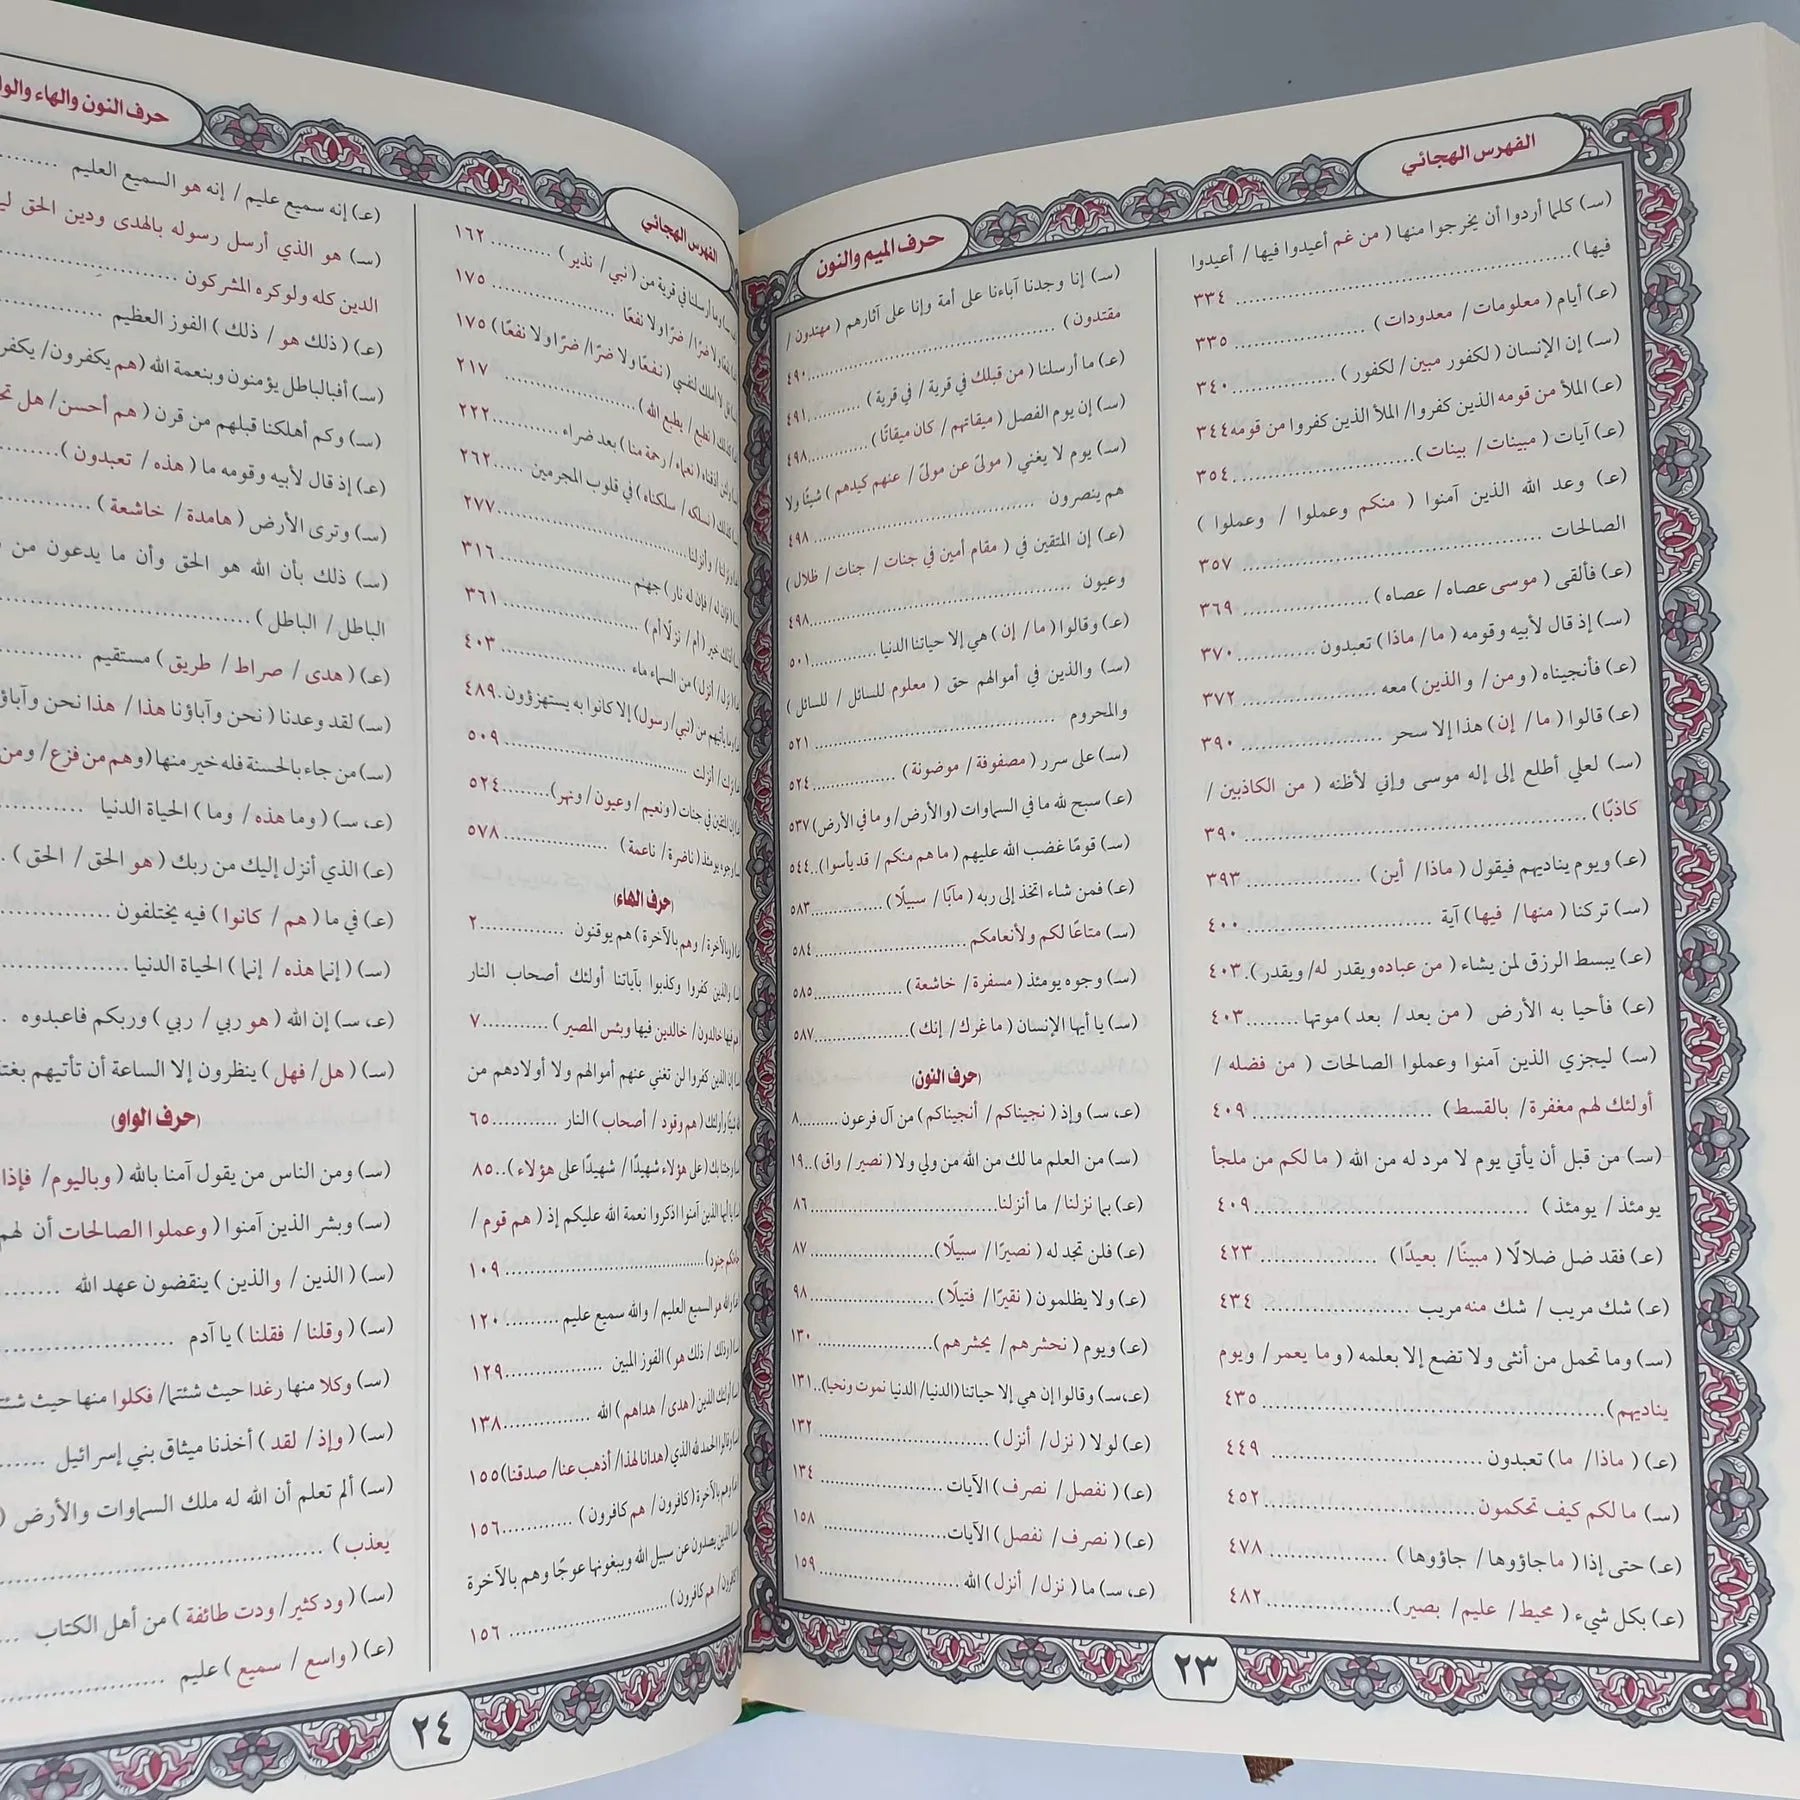 الفهرس الهجائي
حرف الميم والنون
(سـ) كلما أردوا أن يخرجوا منها ( من غم أعيدوا فيها / أعيدوا
فيها ) ........ ٣٣٤
(عـ) أيام ( معلومات / معدودات ) ........ ٣٣٥
(سـ) إن الإنسان ( لكفور مبين / لكفور ) ........ ٣٤٠
(عـ) الملأ من قومه الذين كفروا / الملأ الذين كفروا من قومه ٣٤٤
(عـ) آيات ( مبينات / بينات ) ........ ٣٥٤
(عـ) وعد الله الذين آمنوا ( منكم وعملوا / وعملوا )
الصالحات ........ ٣٥٧
(عـ) فألقى ( موسى عصاه / عصاه ) ........ ٣٦٩
(سـ) إذ قال لأبيه وقومه ( ما / ماذا ) تعبدون ........ ٣٧٠
(عـ) فأنجيناه ( ومن / والذين ) معه ........ ٣٧٢
(عـ) قالوا ( ما / إن ) هذا إلا سحر ........ ٣٩٠
(سـ) لعلي أطلع إلى إله موسى وإني لأظنه ( من الكاذبين /
كاذبًا ) ........ ٣٩٠
(عـ) ويوم يناديهم فيقول ( ماذا / أين ) ........ ٣٩٣
(سـ) تركنا ( منها / فيها ) آية ........ ٤٠٠
(عـ) يبسط الرزق لمن يشاء ( من عباده ويقدر له / ويقدر ) . ٤٠٣
(عـ) فأحيا به الأرض ( من بعد / بعد ) موتها ........ ٤٠٣
(سـ) ليجزي الذين آمنوا وعملوا الصالحات ( من فضله /
أولئك لهم مغفرة / بالقسط ) ........ ٤٠٩
(سـ) من قبل أن يأتي يوم لا مرد له من الله ( ما لكم من ملجأ
يومئذ / يومئذ ) ........ ٤٠٩
(عـ) فقد ضل ضلالًا ( مبينًا / بعيدًا ) ........ ٤٢٣
(عـ) شك مريب / شك منه مريب ........ ٤٣٤
(سـ) وما تحمل من أنثى ولا تضع إلا بعلمه ( وما يعمر / ويوم
يناديهم ) ........ ٤٣٥
(عـ) ( ماذا / ما ) تعبدون ........ ٤٤٩
(سـ) ما لكم كيف تحكمون ........ ٤٥٢
(عـ) حتى إذا ( ما جاؤوها / جاؤوها ) ........ ٤٧٨
(عـ) بكل شيء ( محيط / عليم / بصير ) ........ ٤٨٢
(سـ) إنا وجدنا آباءنا على أمة وإنا على آثارهم ( مهتدون /
مقتدون ) ........ ٤٩٠
(عـ) ما أرسلنا ( من قبلك في قرية / في قرية ) ........ ٤٩١
(سـ) إن يوم الفصل ( ميقاتهم / كان ميقاتًا ) ........ ٤٩٨
(سـ) يوم لا يغني ( مولىً عن مولىً / عنهم كيدهم ) شيئًا ولا
هم ينصرون ........ ٤٩٨
(عـ) إن المتقين في ( مقام أمين في جنات / جنات / ظلال )
وعيون ........ ٤٩٨
(عـ) وقالوا ( ما / إن ) هي إلا حياتنا الدنيا ........ ٥٠١
(سـ) والذين في أموالهم حق ( معلوم للسائل / للسائل )
والمحروم ........ ٥٢١
(سـ) على سرر ( مصفوفة / موضونة ) ........ ٥٢٤
(عـ) سبح لله ما في السماوات ( والأرض / وما في الأرض ) ٥٣٧
(سـ) قومًا غضب الله عليهم ( ما هم منكم / قد يأسوا ) .. ٥٤٤
(عـ) فمن شاء اتخذ إلى ربه ( مآبًا / سبيلًا ) ........ ٥٨٣
(سـ) متاعًا لكم ولأنعامكم ........ ٥٨٤
(سـ) وجوه يومئذ ( مسفرة / خاشعة ) ........ ٥٨٥
(سـ) يا أيها الإنسان ( ما غرك / إنك ) ........ ٥٨٧
(حرف النون)
(عـ، سـ) وإذ ( نجيناكم / أنجيناكم ) من آل فرعون ........ ٨
(سـ) من العلم ما لك من الله من ولي ولا ( نصير / واق ) .. ١٩
(عـ) بما نزلنا / ما أنزلنا ........ ٨٦
(عـ) فلن تجد له ( نصيرًا / سبيلًا ) ........ ٨٧
(عـ) ولا يظلمون ( نقيرًا / فتيلًا ) ........ ٩٨
(عـ) ويوم ( نحشرهم / يحشرهم ) ........ ١٣٠
(عـ، سـ) وقالوا إن هي إلا حياتنا ( الدنيا / الدنيا نموت ونحيا ) .. ١٣١
(عـ) لولا ( نزل / أنزل ) ........ ١٣٢
(عـ) ( نفصل / نصرف ) الآيات ........ ١٣٤
(عـ) ( نصرف / نفصل ) الآيات ........ ١٥٨
(عـ، سـ) ما ( نزل / أنزل ) الله ........ ١٥٩
٢٣
الفهرس الهجائي
حرف النون والهاء والوا
وما أرسلنا في قرية من ( نبي / نذير ) ........ ١٦٢
ولا ضرًا / ضرًا ولا نفعًا ........ ١٧٥
قل لا أملك لنفسي ( نفعًا ولا ضرًا / ضرًا ولا نفعًا ) ١٧٥
كذلك ( نطبع / يطبع الله ) ........ ٢١٧
ولئن أذقناه ( نعماء / رحمة منا ) بعد ضراء ........ ٢٢٢
كذلك ( نسلكه / سلكناه ) في قلوب المجرمين ..... ٢٦٢
ونزلنا / وأنزلنا ........ ٢٧٧
فإن له نار ) جهنم ........ ٣١٦
خير ( أم / نزلًا أم ) ........ ٣٦١
( نزل / أنزل ) من السماء ماء ........ ٤٠٣
وما يأتيهم من ( نبي / رسول ) إلا كانوا به يستهزؤون . ٤٨٩
نزلت / أنزلت ........ ٥٠٩
إن المتقين في جنات ( ونعيم / وعيون / ونهر ) ........ ٥٢٤
وجوه يومئذ ( ناضرة / ناعمة ) ........ ٥٧٨
(حرف الهاء)
( وبالآخرة / وهم بالآخرة ) هم يوقنون ........ ٢
والذين كفروا وكذبوا بآياتنا أولئك أصحاب النار
هم فيها خالدون / خالدين فيها وبئس المصير ) ........ ٧
إن الذين كفروا لن تغني عنهم أموالهم ولا أولادهم من
شيئًا وأولئك ( هم وقود / أصحاب ) النار ........ ٦٥
وجئنا بك ( على هؤلاء شهيدًا / شهيدًا على هؤلاء ) .. ٨٥
يا أيها الذين آمنوا اذكروا نعمة الله عليكم إذ ( هم قوم /
جاءتكم جنود ) ........ ١٠٩
والله هو السميع العليم / والله سميع عليم ........ ١٢٠
( وذلك / ذلك هو ) الفوز المبين ........ ١٢٩
أولئك الذين ( هدى / هداهم ) الله ........ ١٣٨
وقالوا الحمد لله الذي ( هدانا لهذا / أذهب عنا / صدقنا ) ١٥٥
وهم بالآخرة ( كافرون / هم كافرون ) ........ ١٥٦
الذين يصدون عن سبيل الله ويبغونها عوجًا وهم بالآخرة
كافرون / هم كافرون ) ........ ١٥٦
(عـ) إنه سميع عليم / إنه هو السميع العليم ........
(سـ) هو الذي أرسل رسوله بالهدى ودين الحق
الدين كله ولو كره المشركون ........
(عـ) ( ذلك هو / ذلك ) الفوز العظيم
(سـ) أفبالباطل يؤمنون وبنعمة الله ( هم يكفرون /
(سـ) وكم أهلكنا قبلهم من قرن ( هم أحسن / هل
(عـ) إذ قال لأبيه وقومه ما ( هذه / تعبدون ) ........
(سـ) وترى الأرض ( هامدة / خاشعة ) ........
(سـ) ذلك بأن الله هو الحق وأن ما يدعون من
الباطل / الباطل ) ........
(عـ) ( هدى / صراط / طريق ) مستقيم ........
(سـ) لقد وعدنا ( نحن وآباؤنا هذا / هذا نحن وآباؤ
(سـ) من جاء بالحسنة فله خير منها ( وهم من فزع / ومن
(عـ، سـ) ( وما هذه / وما ) الحياة الدنيا ........
(عـ) الذي أنزل إليك من ربك ( هو الحق / الحق ) .
(عـ) في ما ( هم / كانوا ) فيه يختلفون ........
(سـ) ( إنما هذه / إنما ) الحياة الدنيا ........
(عـ، سـ) إن الله ( هو ربي / ربي ) وربكم فاعبدوه ..
(سـ) ( هل / فهل ) ينظرون إلا الساعة أن تأتيهم
(حرف الواو)
(سـ) ومن الناس من يقول آمنا بالله ( وباليوم / فإذا
(سـ) وبشر الذين آمنوا ( وعملوا الصالحات أن لهم
(سـ) ( الذين / والذين ) ينقضون عهد الله ........
(سـ) ( وقلنا / فقلنا ) يا آدم ........
(سـ) وكلا منها رغدا حيث شئتما / فكلوا منها حيث
(سـ) ( وإذ / لقد ) أخذنا ميثاق بني إسرائيل ......
(سـ) ألم تعلم أن الله له ملك السماوات والأرض (
يعذب ) ........
(سـ) ( ود كثير / ودت طائفة ) من أهل الكتاب ...
(عـ) ( واسع / سميع ) عليم ........
٢٤